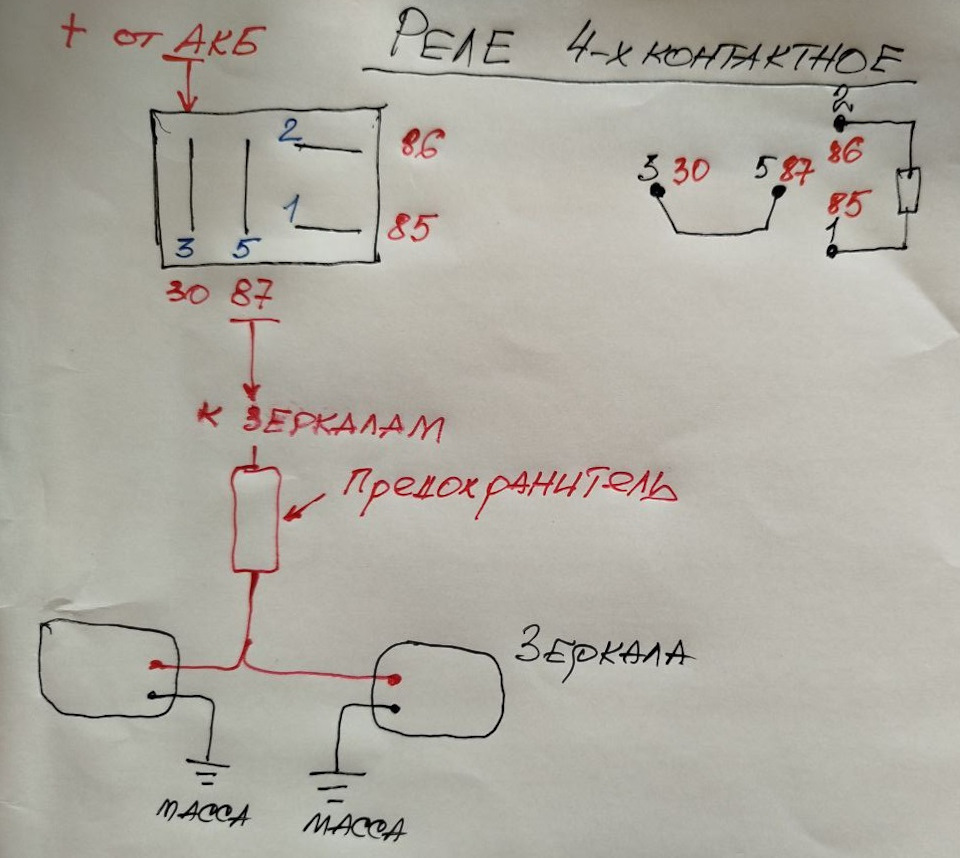 + от АКБ
РЕЛЕ 4-Х КОНТАКТНОЕ
2 86
1 85
3 5
30 87
2
86
3 30 5 87
85
1
К ЗЕРКАЛАМ
ПредохрАНИТЕЛЬ
ЗЕРКАЛА
МАССА
МАССА